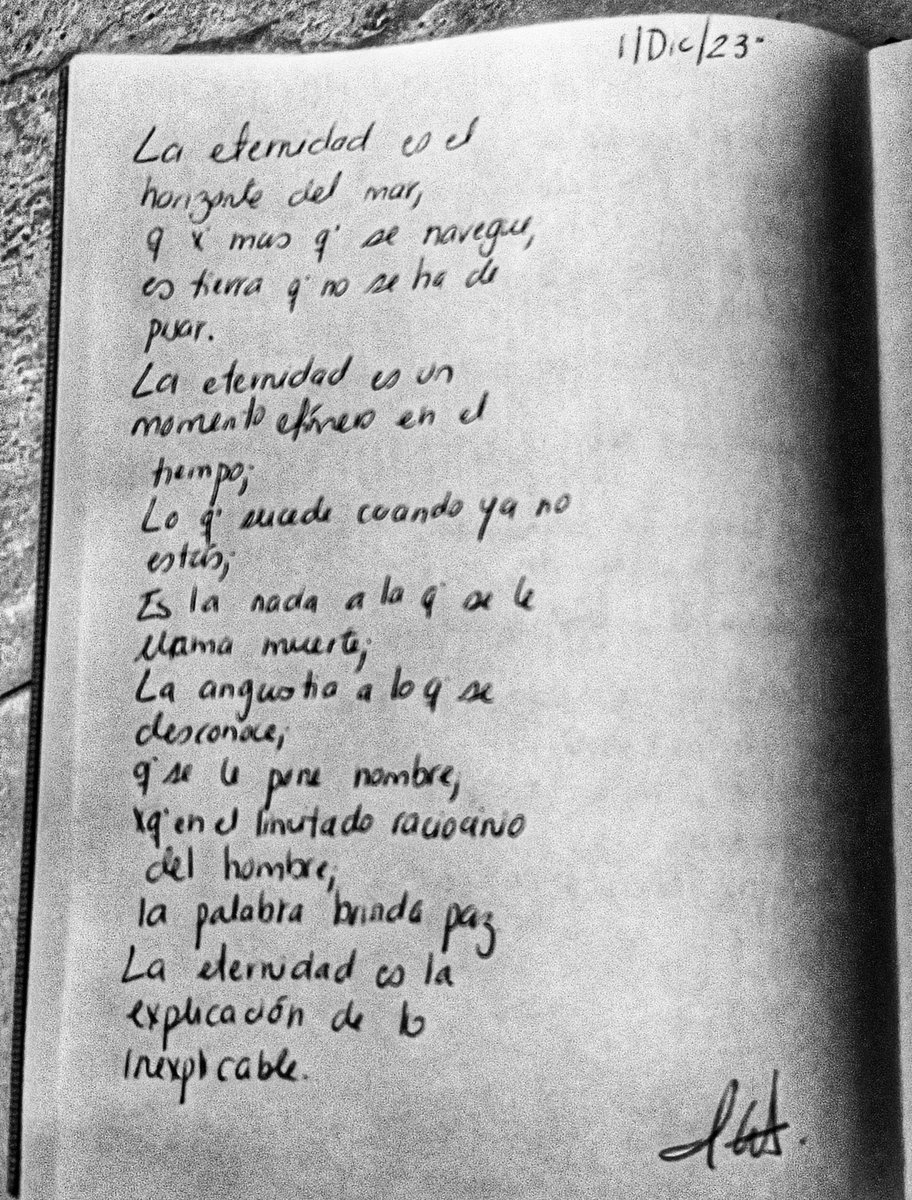 1/Dic/23.
La eternidad es el
horizonte del mar,
q x mas q' se navegue,
es tierra q' no se ha de
pisar.
La eternidad es un
momento efímero en el
tiempo;
Lo q' sucede cuando ya no
estás;
Es la nada a la q' se le
llama muerte;
La angustia a lo q' se
desconoce;
q' se le pone nombre,
xq' en el limitado raciocinio
del hombre,
la palabra brinda paz
La eternidad es la
explicación de lo
inexplicable.